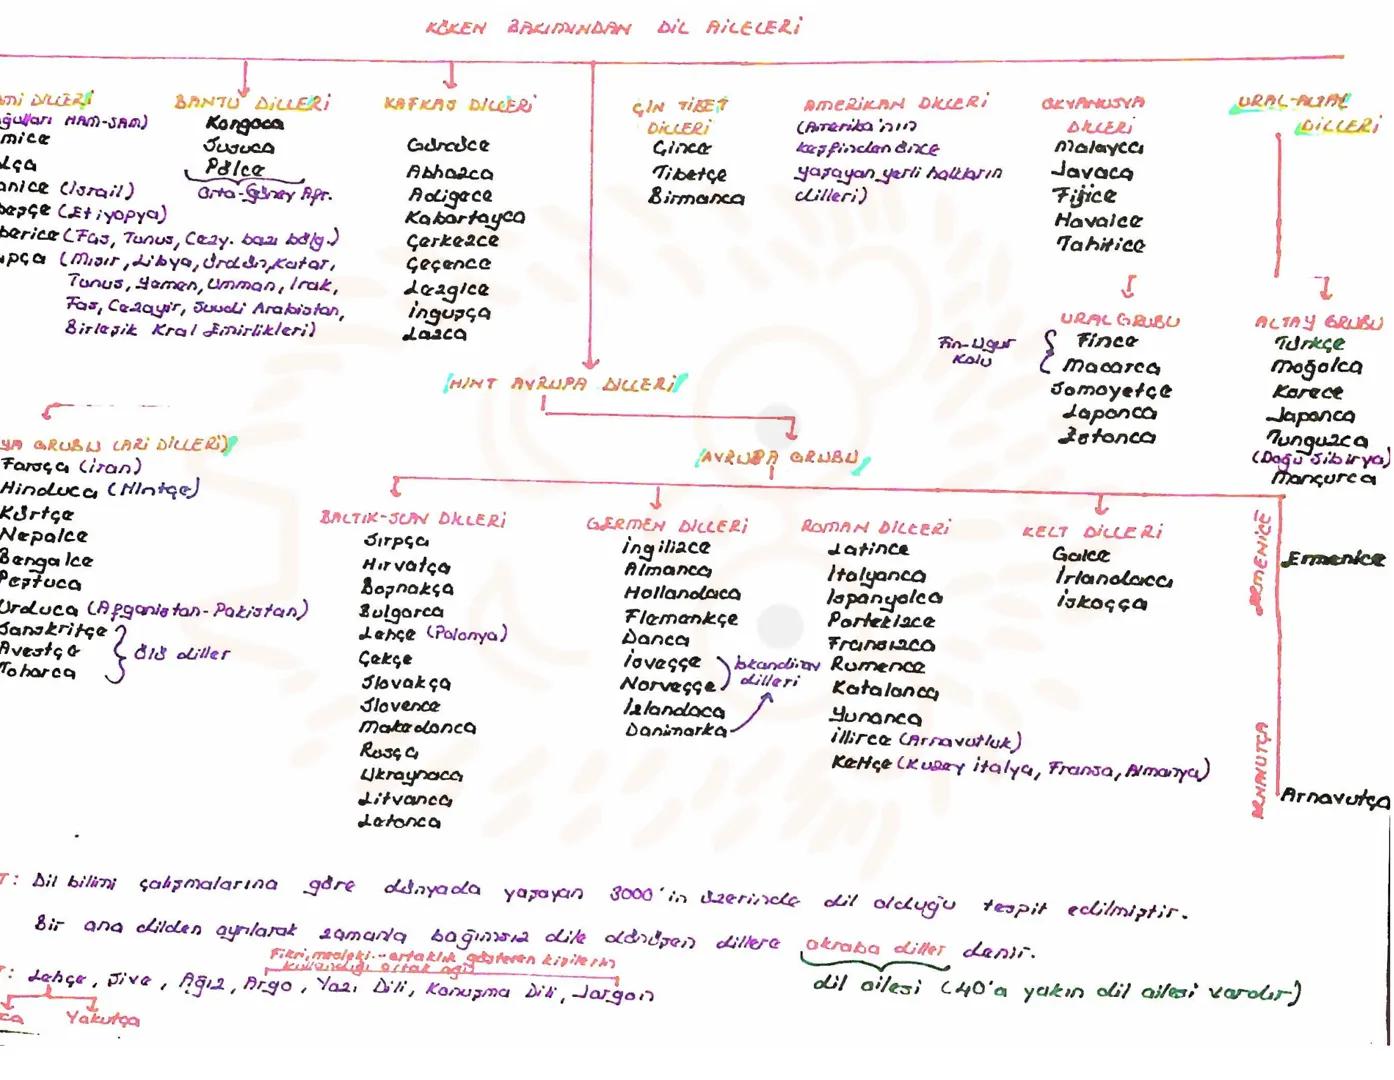 KÖKEN BAKIMINDAN DİL AİLELERİ
Mİ DİLLERİ
ğulları HAM-SAM)
mice
lça
anice (İsrail)
beşçe (Etiyopya)
berice (Fas, Tunus, Cezy. bazı bölg.)
apça (Mısır, Libya, Ürdün, Katar,
Tunus, Yemen, Umman, Irak,
Fas, Cezayir, Suudi Arabistan,
Birleşik Kral Emirlikleri)
BANTU DİLLERİ
Kongoca
Susuca
Pölce
Orta-Güney Afr.
KAFKAS DİLLERİ
Gürcüce
Abhazca
Adigece
Kabartayca
Çerkezce
Çeçence
Lezgice
İnguşça
Lazca
ÇİN TİBET
DİLLERİ
Çince
Tibetçe
Birmanca
AMERİKAN DİLLERİ
(Amerika'nın
keşfinden önce
yaşayan yerli halkların
dilleri)
OKYANUSYA
DİLLERİ
Malayca
Javaca
Fijice
Havaice
Tahitice
URAL-ALTAY
DİLLERİ
URAL GRUBU
Fin-Ugur
Kolu
Fince
Macarca
Samoyetçe
Laponca
Estonca
ALTAY GRUBU
Türkçe
Moğolca
Korece
Japonca
Tunguzca
(Doğu Sibirya)
Mançurca
HİNT AVRUPA DİLLERİ
YA GRUBU (ARİ DİLLERİ)
Farsça (İran)
Hinduca (Hintçe)
Kürtçe
Nepalce
Bengalce
Peştuca
Urduca (Afganistan-Pakistan)
Sanskritçe
Avestçe
Toharca
ölü diller
AVRUPA GRUBU
BALTIK-SLAV DİLLERİ
Sırpça
Hırvatça
Boşnakça
Bulgarca
Lehçe (Polonya)
Çekçe
Slovakça
Slovence
Makedonca
Rusça
Ukraynaca
Litvanca
Letonca
GERMEN DİLLERİ
İngilizce
Almanca
Hollandaca
Flemenkçe
Danca
İsveççe
Norveççe
İzlandaca
Danimarka
İskandinav
dilleri
ROMAN DİLLERİ
Latince
İtalyanca
İspanyolca
Portekizce
Fransızca
Rumence
Katalanca
Yunanca
İllirce (Arnavutluk)
Keltçe (Kuzey İtalya, Fransa, Almanya)
KELT DİLLERİ
Galce
İrlandaca
İskoçça
ERMENİCE
Ermenice
ARNAVUTÇA
Arnavutça
T: Dil bilimi çalışmalarına göre dünyada yaşayan 3000'in üzerinde dil olduğu tespit edilmiştir.
Bir ana dilden ayrılarak zamanla bağımsız dile dönüşen dillere akraba diller denir.
dil ailesi (40'a yakın dil ailesi vardır)
Fikri, mesleki.. ortaklık gösteren kişilerin
kullandığı ortak ağız
T: Lehçe, Şive, Ağız, Argo, Yazı Dili, Konuşma Dili, Jargon
ca Yakutça